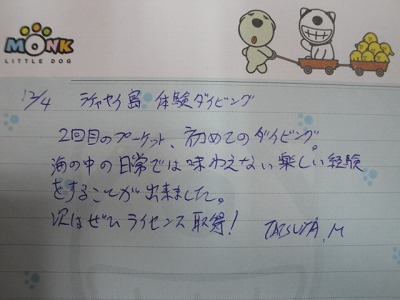 MONK
LITTLE DOG
12/4 ラチャヤイ島 体験ダイビング
2回目のプーケット、初めてのダイビング。
海の中の日常では味わえない楽しい経験
をすることが出来ました。
次はぜひライセンス取得！ TATSUYA. M